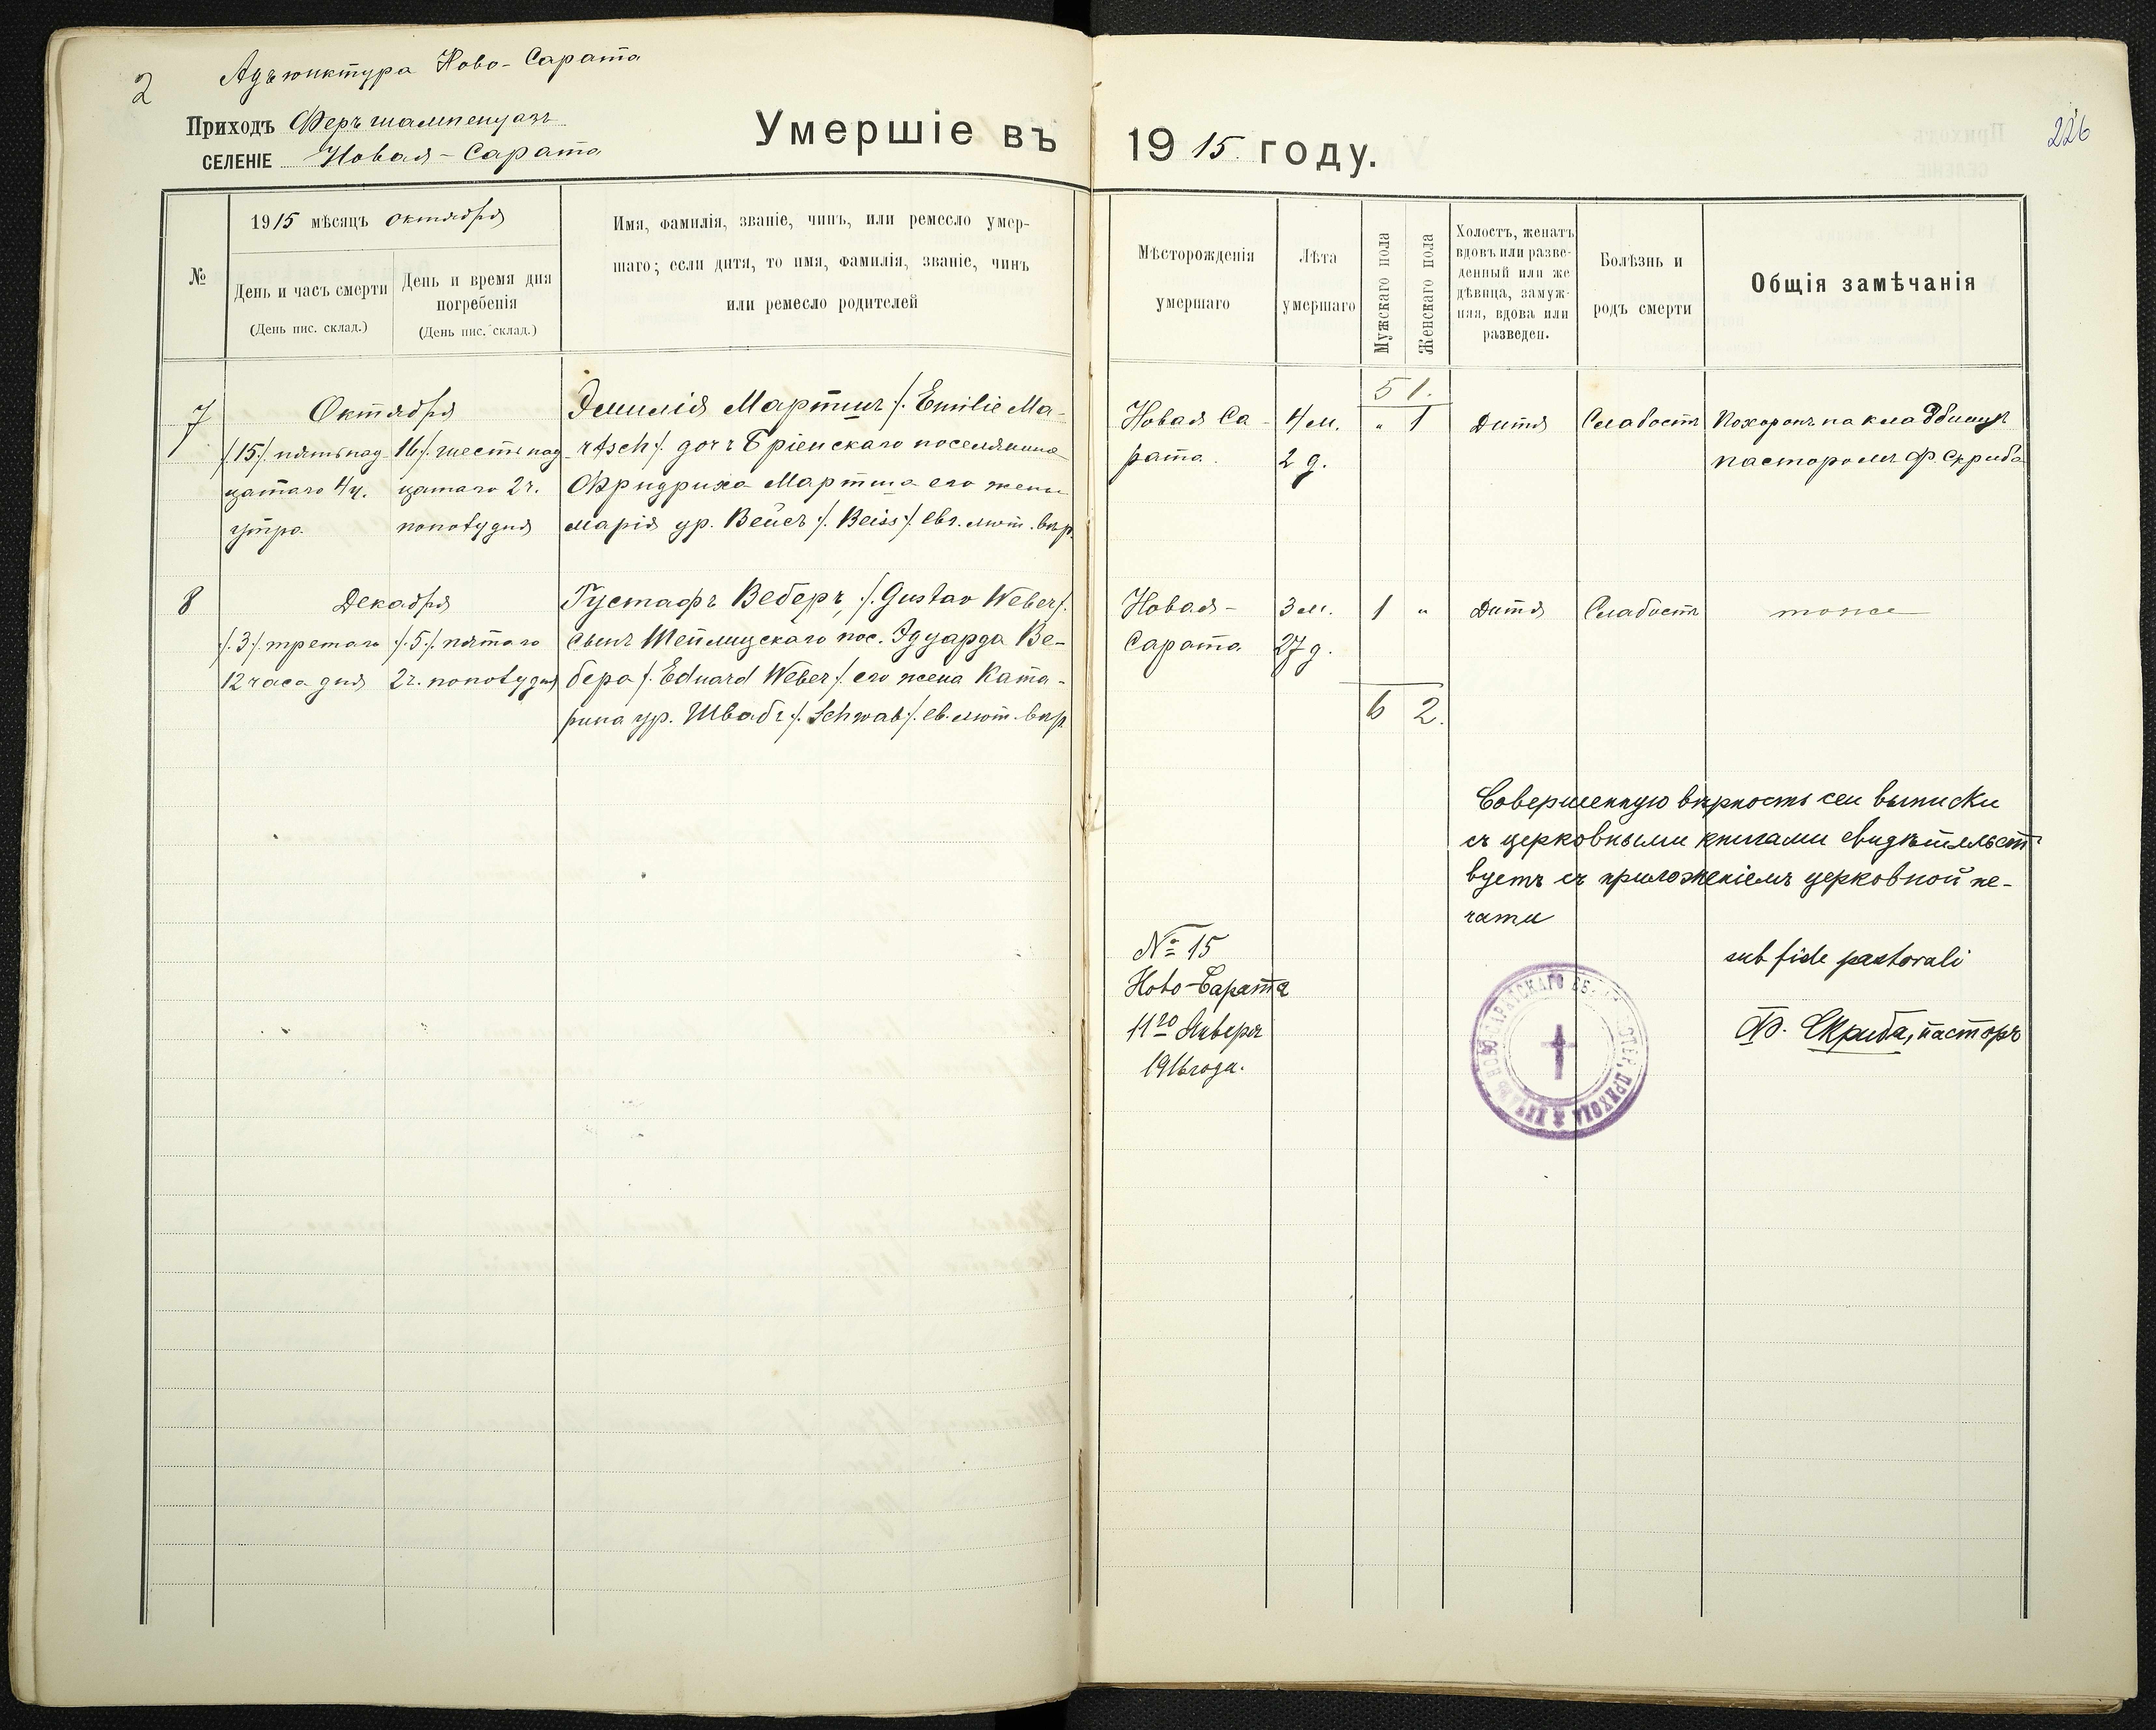 2
Адъюнктура Ново-Сарата
Приходъ Фершампенуазъ
СЕЛЕНІЕ Новая-Сарата
Умершіе въ
1915. году.
226
№
1915 мѣсяцъ Октября
День и часъ смерти
(День пис. склад.)
День и время дня
погребенія
(День пис. склад.)
Имя, фамилія, званіе, чинъ, или ремесло умер-
шаго; если дитя, то имя, фамилія, званіе, чинъ
или ремесло родителей
Мѣсторожденія
умершаго
Лѣта
умершаго
Мужскаго пола
Женскаго пола
Холостъ, женатъ
вдовъ или разве-
денный или же
дѣвица, замуж-
няя, вдова или
разведен.
Болѣзнь и
родъ смерти
Общія замѣчанія
7
Октября
/:15:/ пятьнад-
цатаго 4ч.
утра.
16/: шестьнад-
цатаго 2ч.
пополудня
Эмилія Мартшъ /: Emilie Ma-
rtsch :/ дочь Бріенскаго поселянина
Фридриха Мартша его жены
Марія ур. Вейсъ /: Beiss :/ ев. лют. вѣр.
Новая Са-
рата.
4 м.
2 д.
5 1.
" 1
Дитя
Слабость
Похоронъ на кладбищѣ
пасторомъ Ф. Скриба
8
Декабря
/:3:/ третаго
12 часа дня
/:5:/ пятаго
2ч. пополудня
Густафъ Веберъ, /: Gustav Weber :/.
сынъ Теплицскаго пос. Эдуарда Ве-
бера /: Eduard Weber :/ его жена Ката-
рина ур. Швабъ /: Schwab :/ ев. лют. вѣр.
Новая-
Сарата
3 м.
27 д.
1 "
Дитя
Слабость
тоже
6 2.
Совершенную вѣрность сеи выписки
съ церковными книгами свидѣтельст-
вуетъ съ приложеніемъ церковной пе-
чати
№ 15
Ново-Сарата
11го Января
1916 года.
sub fide pastorali
Ф. Скриба, пасторъ